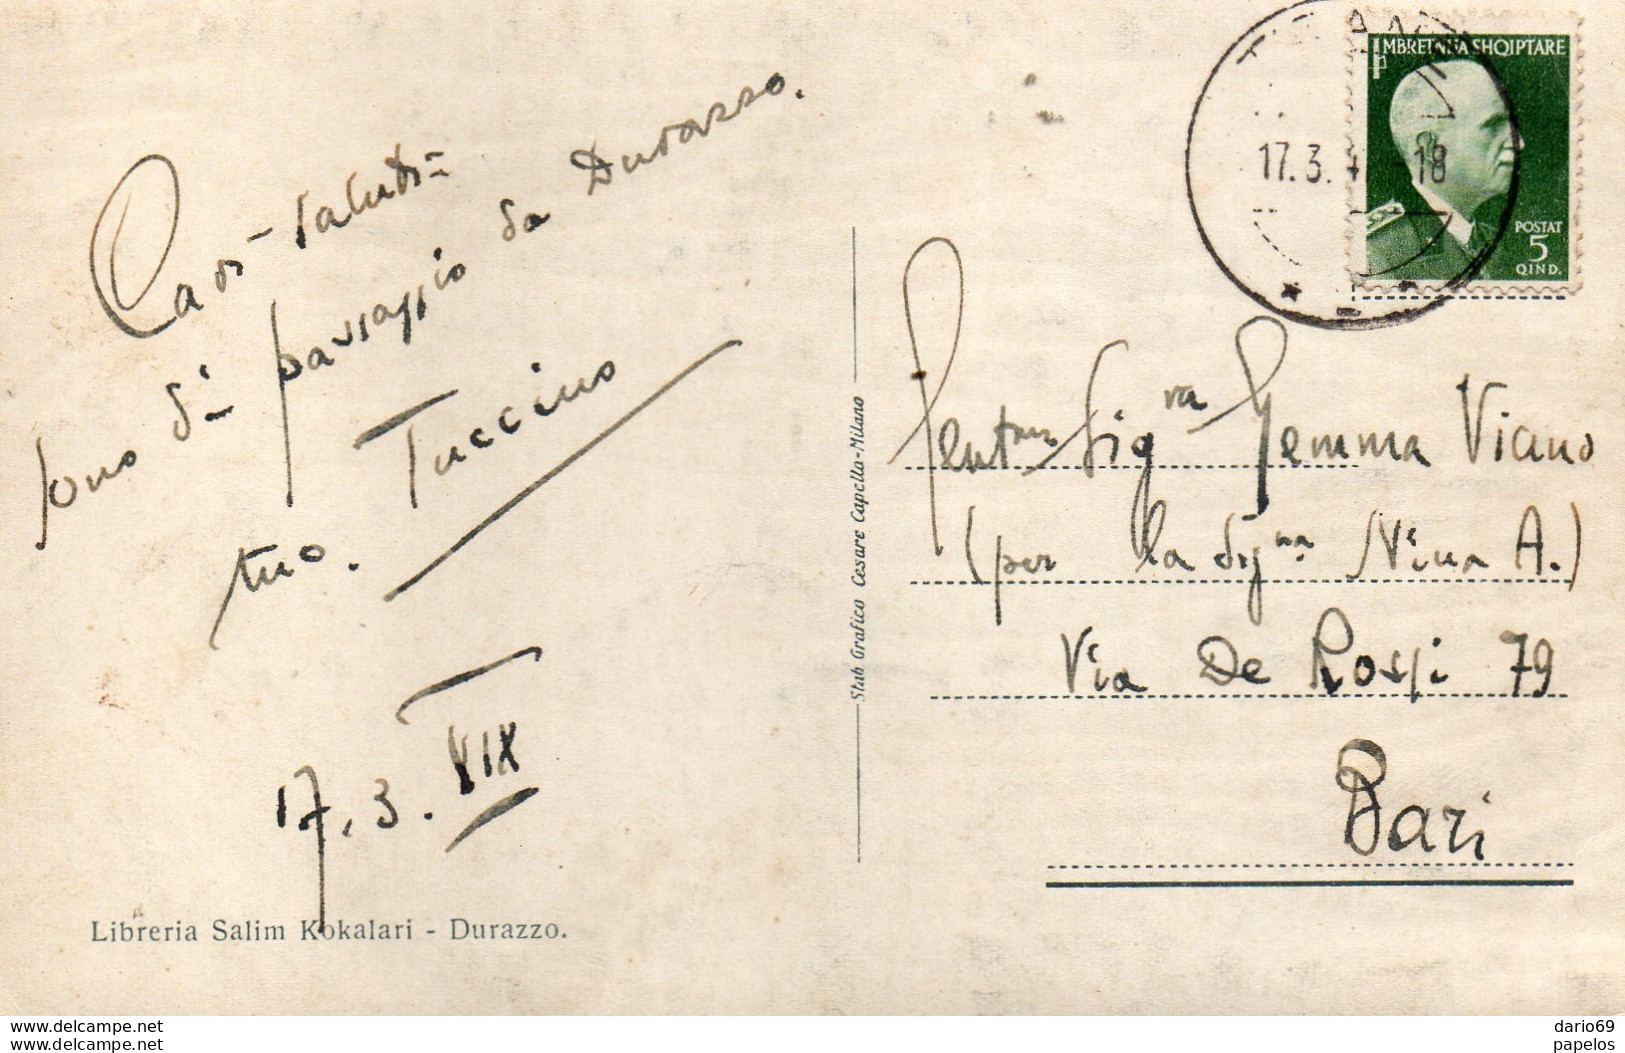 Cari saluti
sono di passaggio da Durazzo.
tuo. Tuccino
17.3.XIX
Libreria Salim Kokalari - Durazzo.
Stab Grafico Cesare Capella-Milano
MBRETNIJA SHQIPTARE
17.3. 18
POSTAT
5
QIND.
Sigra Gemma Viano
(per la Signa Nina A.)
Via De Rossi 79
Bari
www.delcampe.net
www.delcampe.net
dario69
papelos